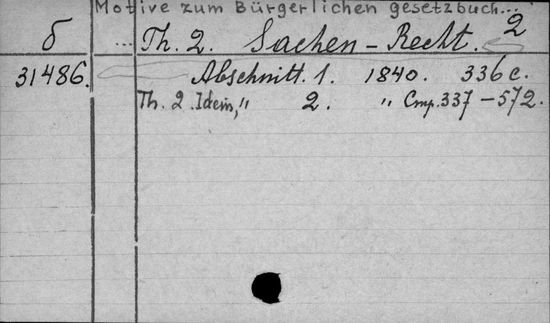 Motive zum Bürgerlichen gesetzbuch... 2
б ... Th. 2. Sachen-Recht.
31486. Abschnitt. 1. 1840. 336 с.
Th. 2. Idem, " 2. " Стр. 337-572.